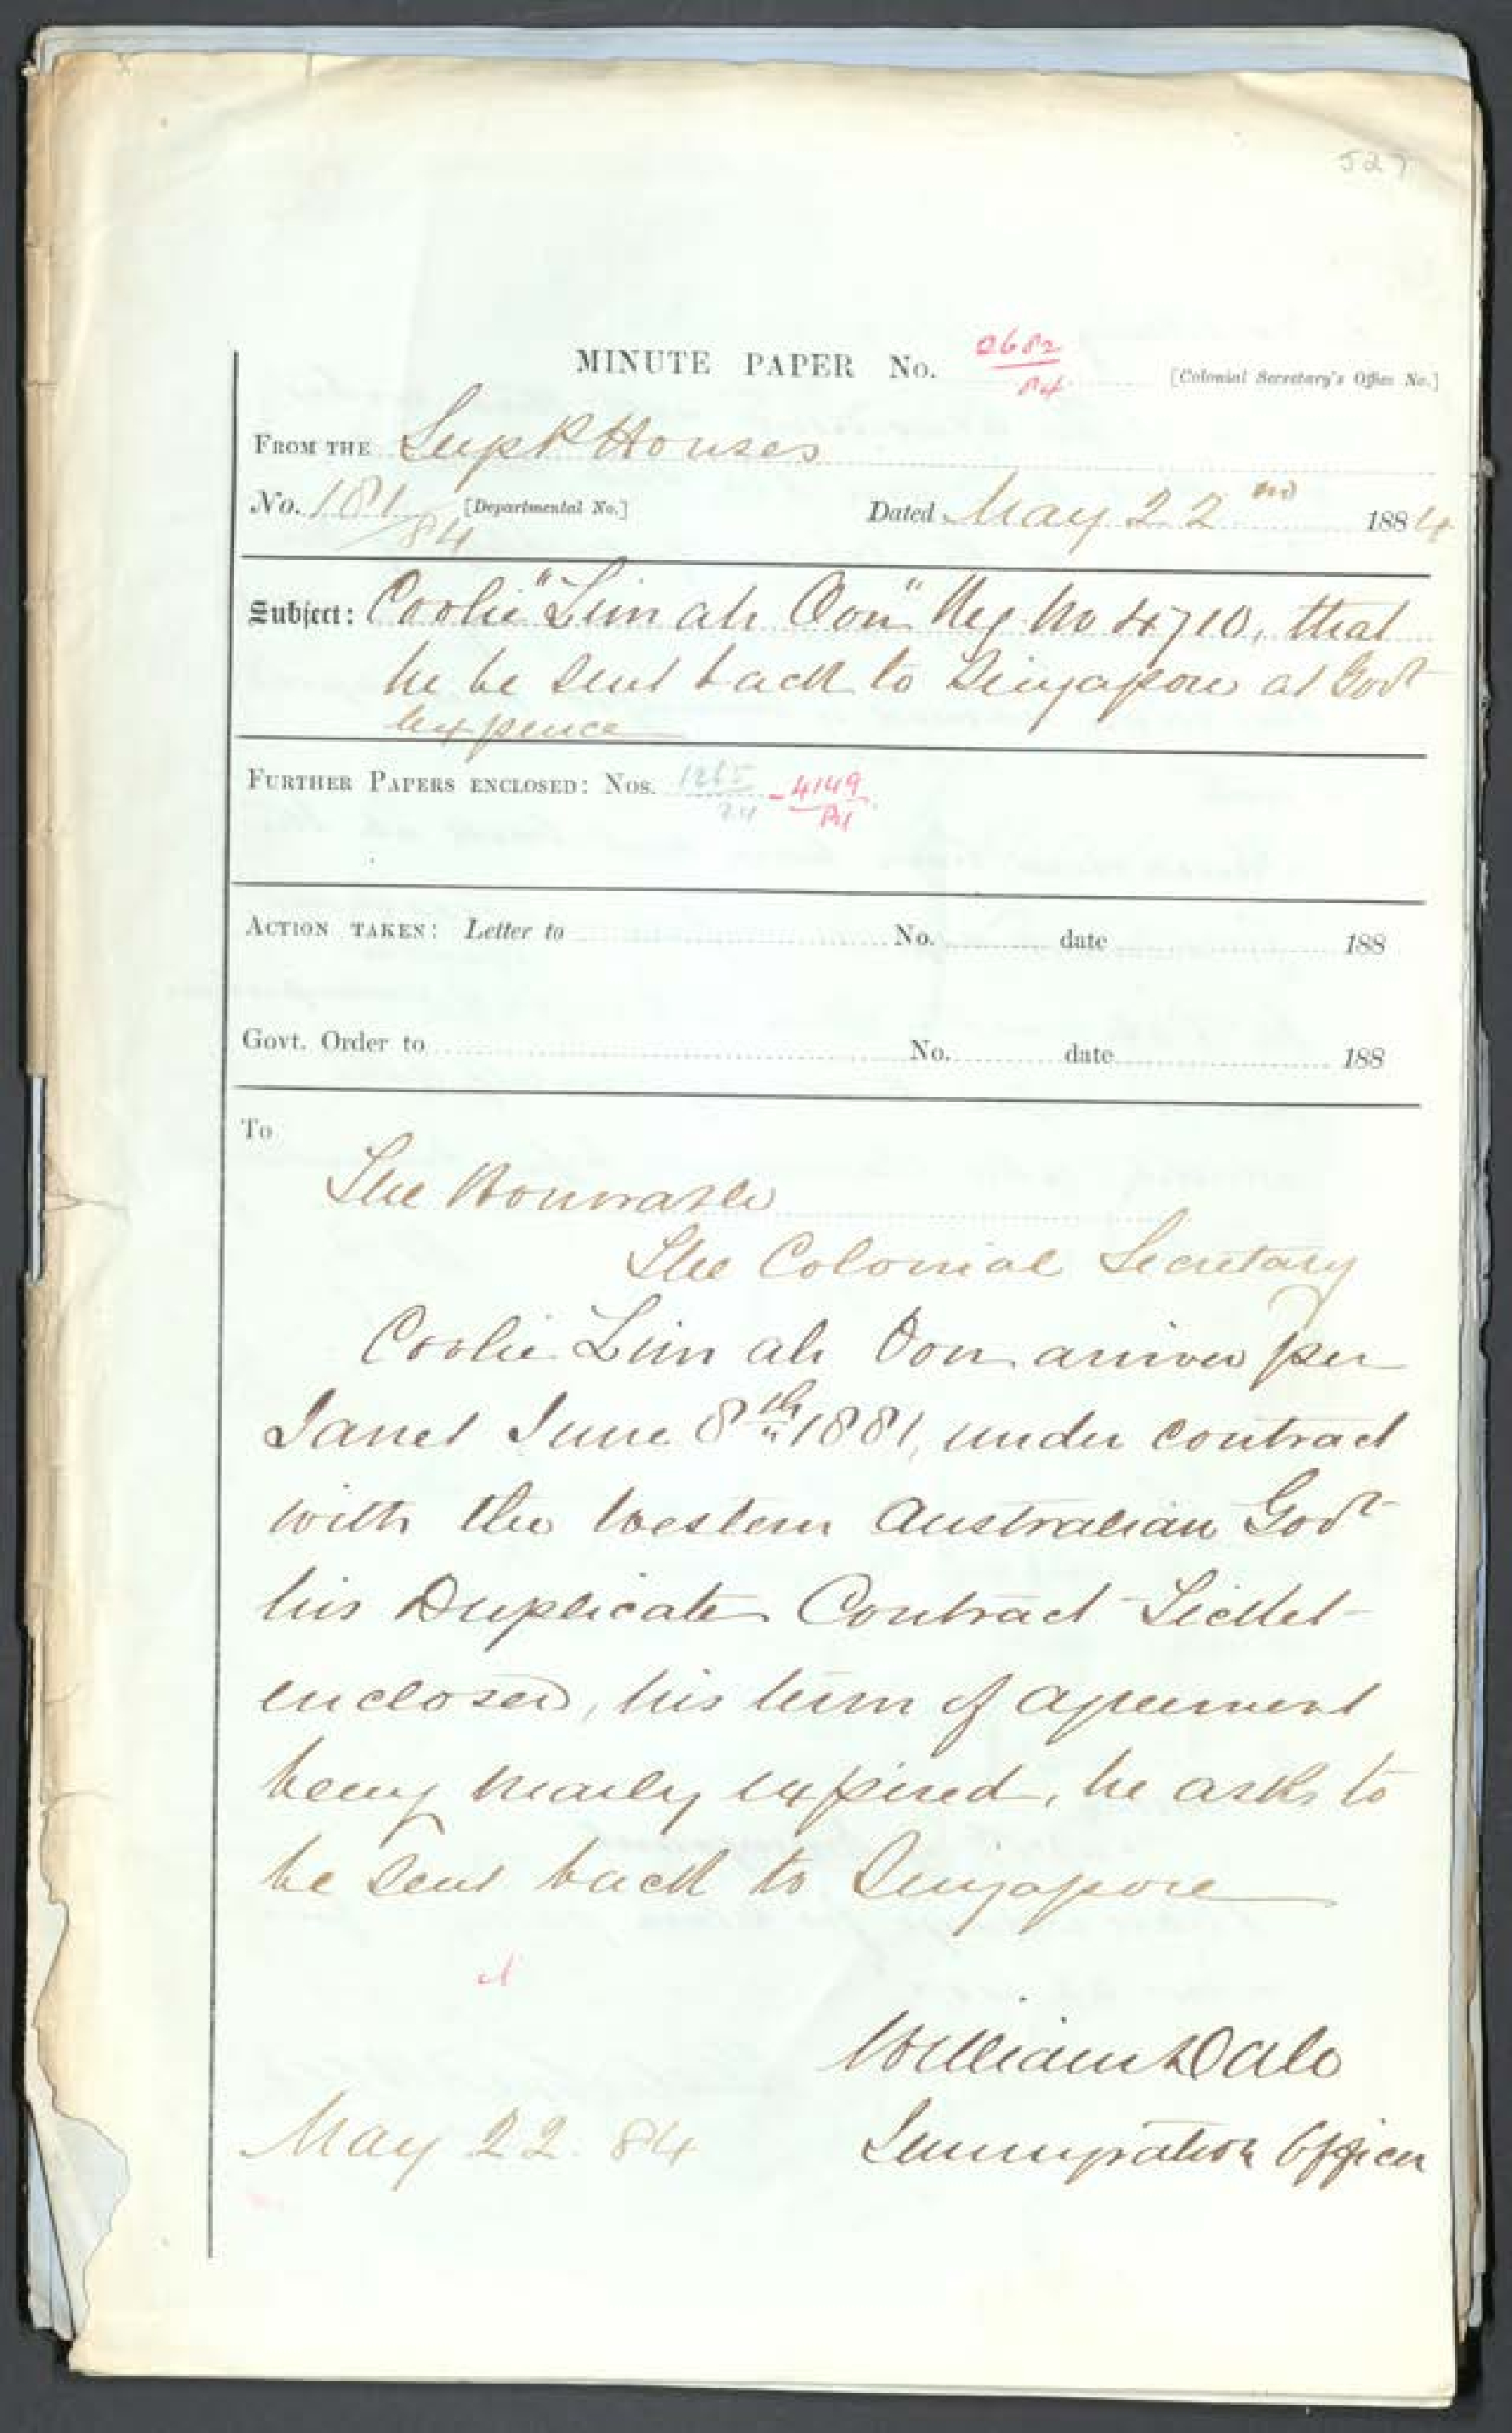 527
MINUTE PAPER No. 2682/84 [Colonial Secretary's Office No.]
FROM THE Supt Houses
No. 181/84 [Departmental No.] Dated May 22nd 1884
Subject: Coolie "Lim ah Oon" Reg No 4710, that
he be sent back to Singapore at Govt
Expence
FURTHER PAPERS ENCLOSED: Nos. 1265/84 - 4149/84
ACTION TAKEN: Letter to No. date 188
Govt. Order to No. date 188
To
The Honorable
The Colonial Secretary
Coolie Lim ah Oon arrived per
Janet June 8th 1881, under contract
with the Western Australian Govt
his Duplicate Contract Ticket
enclosed, his term of agreement
being nearly expired, he asks to
be sent back to Singapore
William Dale
May 22. 84 Immigration Officer